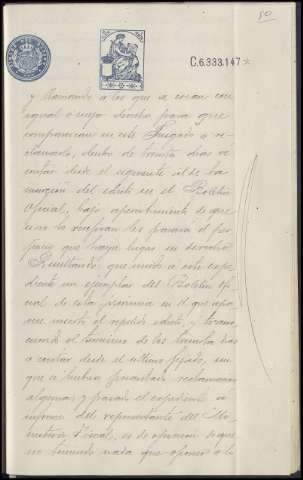 50
C.6.333.147
y llamando á los que se crean con
igual ó mejor derecho para que
comparezcan en este Juzgado á re-
clamarlo, dentro de treinta dias á
contar desde el siguiente al de la
inserción del edicto en el Boletin
Oficial, bajo apercibimiento de que
si no lo verifican les parará el per-
juicio que haya lugar en derecho
Resultando: que unido á este expe-
diente un ejemplar del Boletin Ofi-
cial de esta provincia en el que apa-
rece inserto el repetido edicto, y trans-
currido el término de los treinta dias
á contar desde el último fijado, sin
que se hubiera presentado reclamacion
alguna y pasado el expediente á
informe del representante del Mi-
nisterio Fiscal, es de opinion que
no teniendo nada que oponer á la